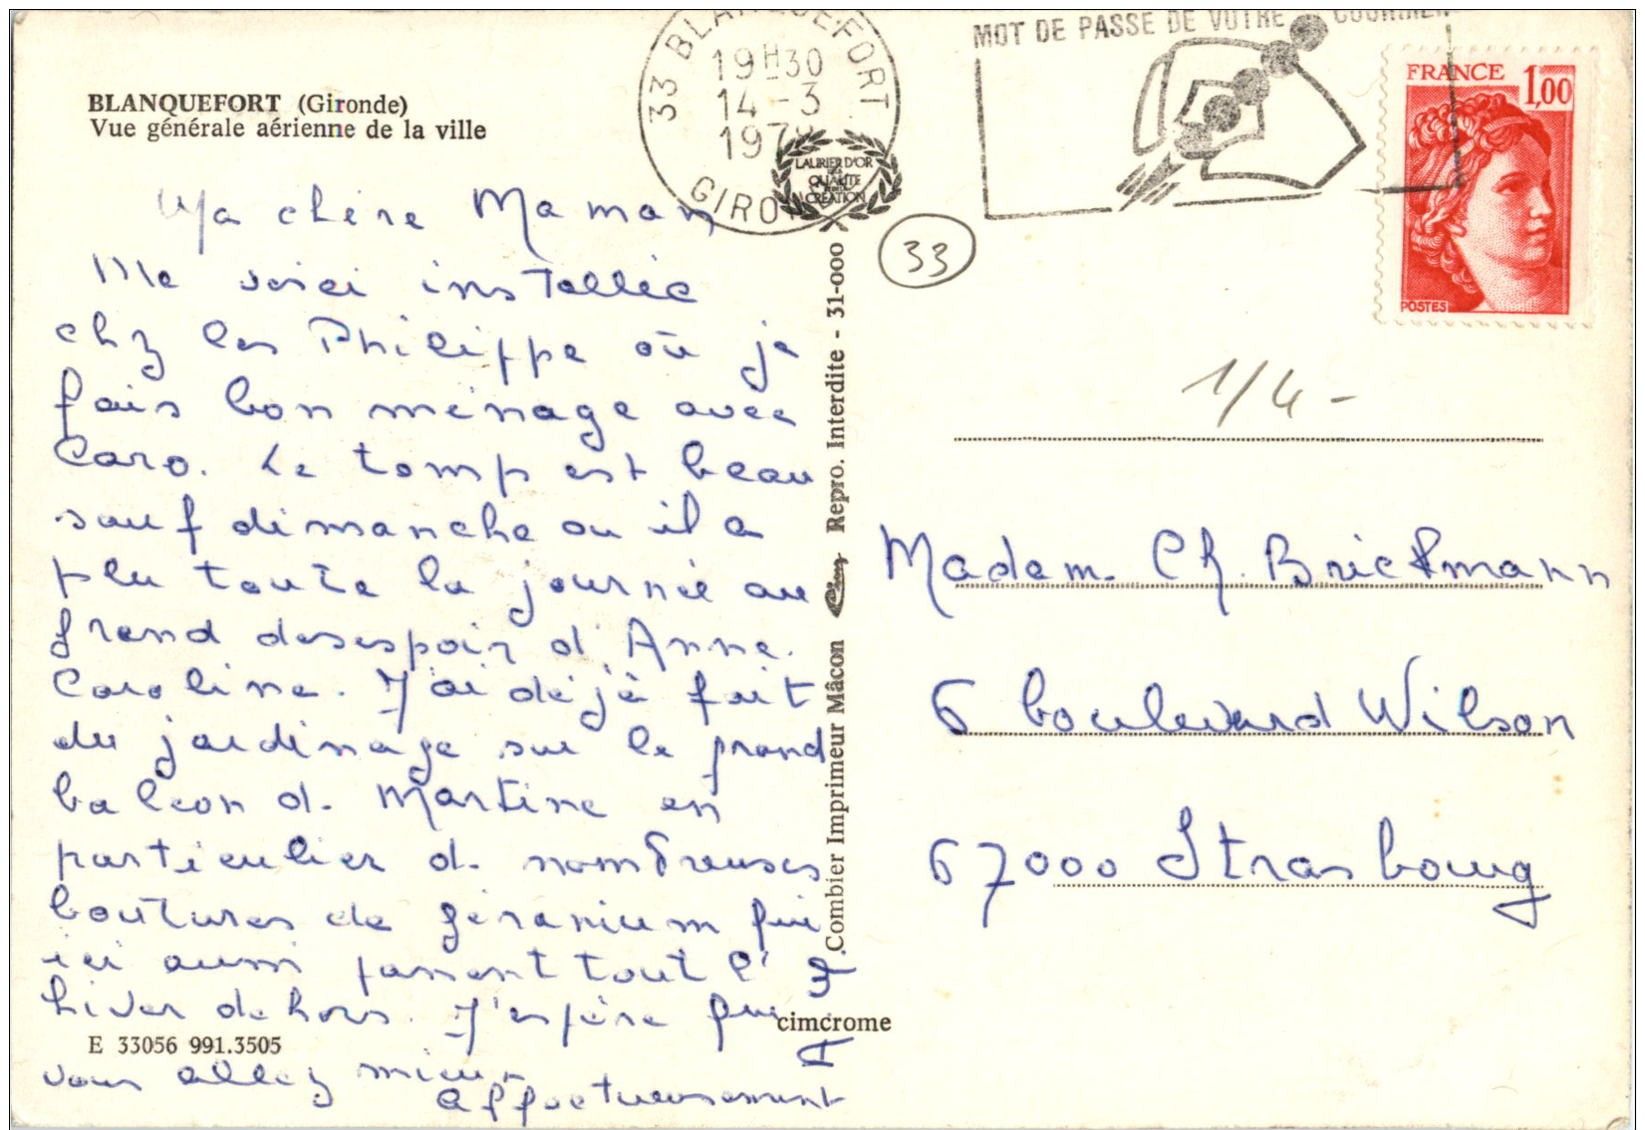 BLANQUEFORT (Gironde)
Vue générale aérienne de la ville
33 BLANQUEFORT
19H30
14-3
1978
GIRONDE
MOT DE PASSE DE VOTRE COURRIER
FRANCE 1,00
POSTES
LAURIER D'OR
QUALITE
CREATION
33
1/4-
Ma chère Maman
Me voici installée
chz les Philippe où je
fais bon ménage avec
Caro. Le temps est beau
sauf dimanche ou il a
plu toute la journée au
grand desespoir d'Anne.
Caroline. J'ai déjà fait
du jardinage sur le grand
balcon de Martine en
particulier de nombreuses
boutures de géranium qui
ici aussi passent tout l'
hiver dehors. J'espère que
vous allez mieux
affectueusement
Madame Ch. Brickmann
6 boulevard Wilson
67000 Strasbourg
Combier Imprimeur Mâcon Repro. Interdite - 31-000
cimcrome
E 33056 991.3505